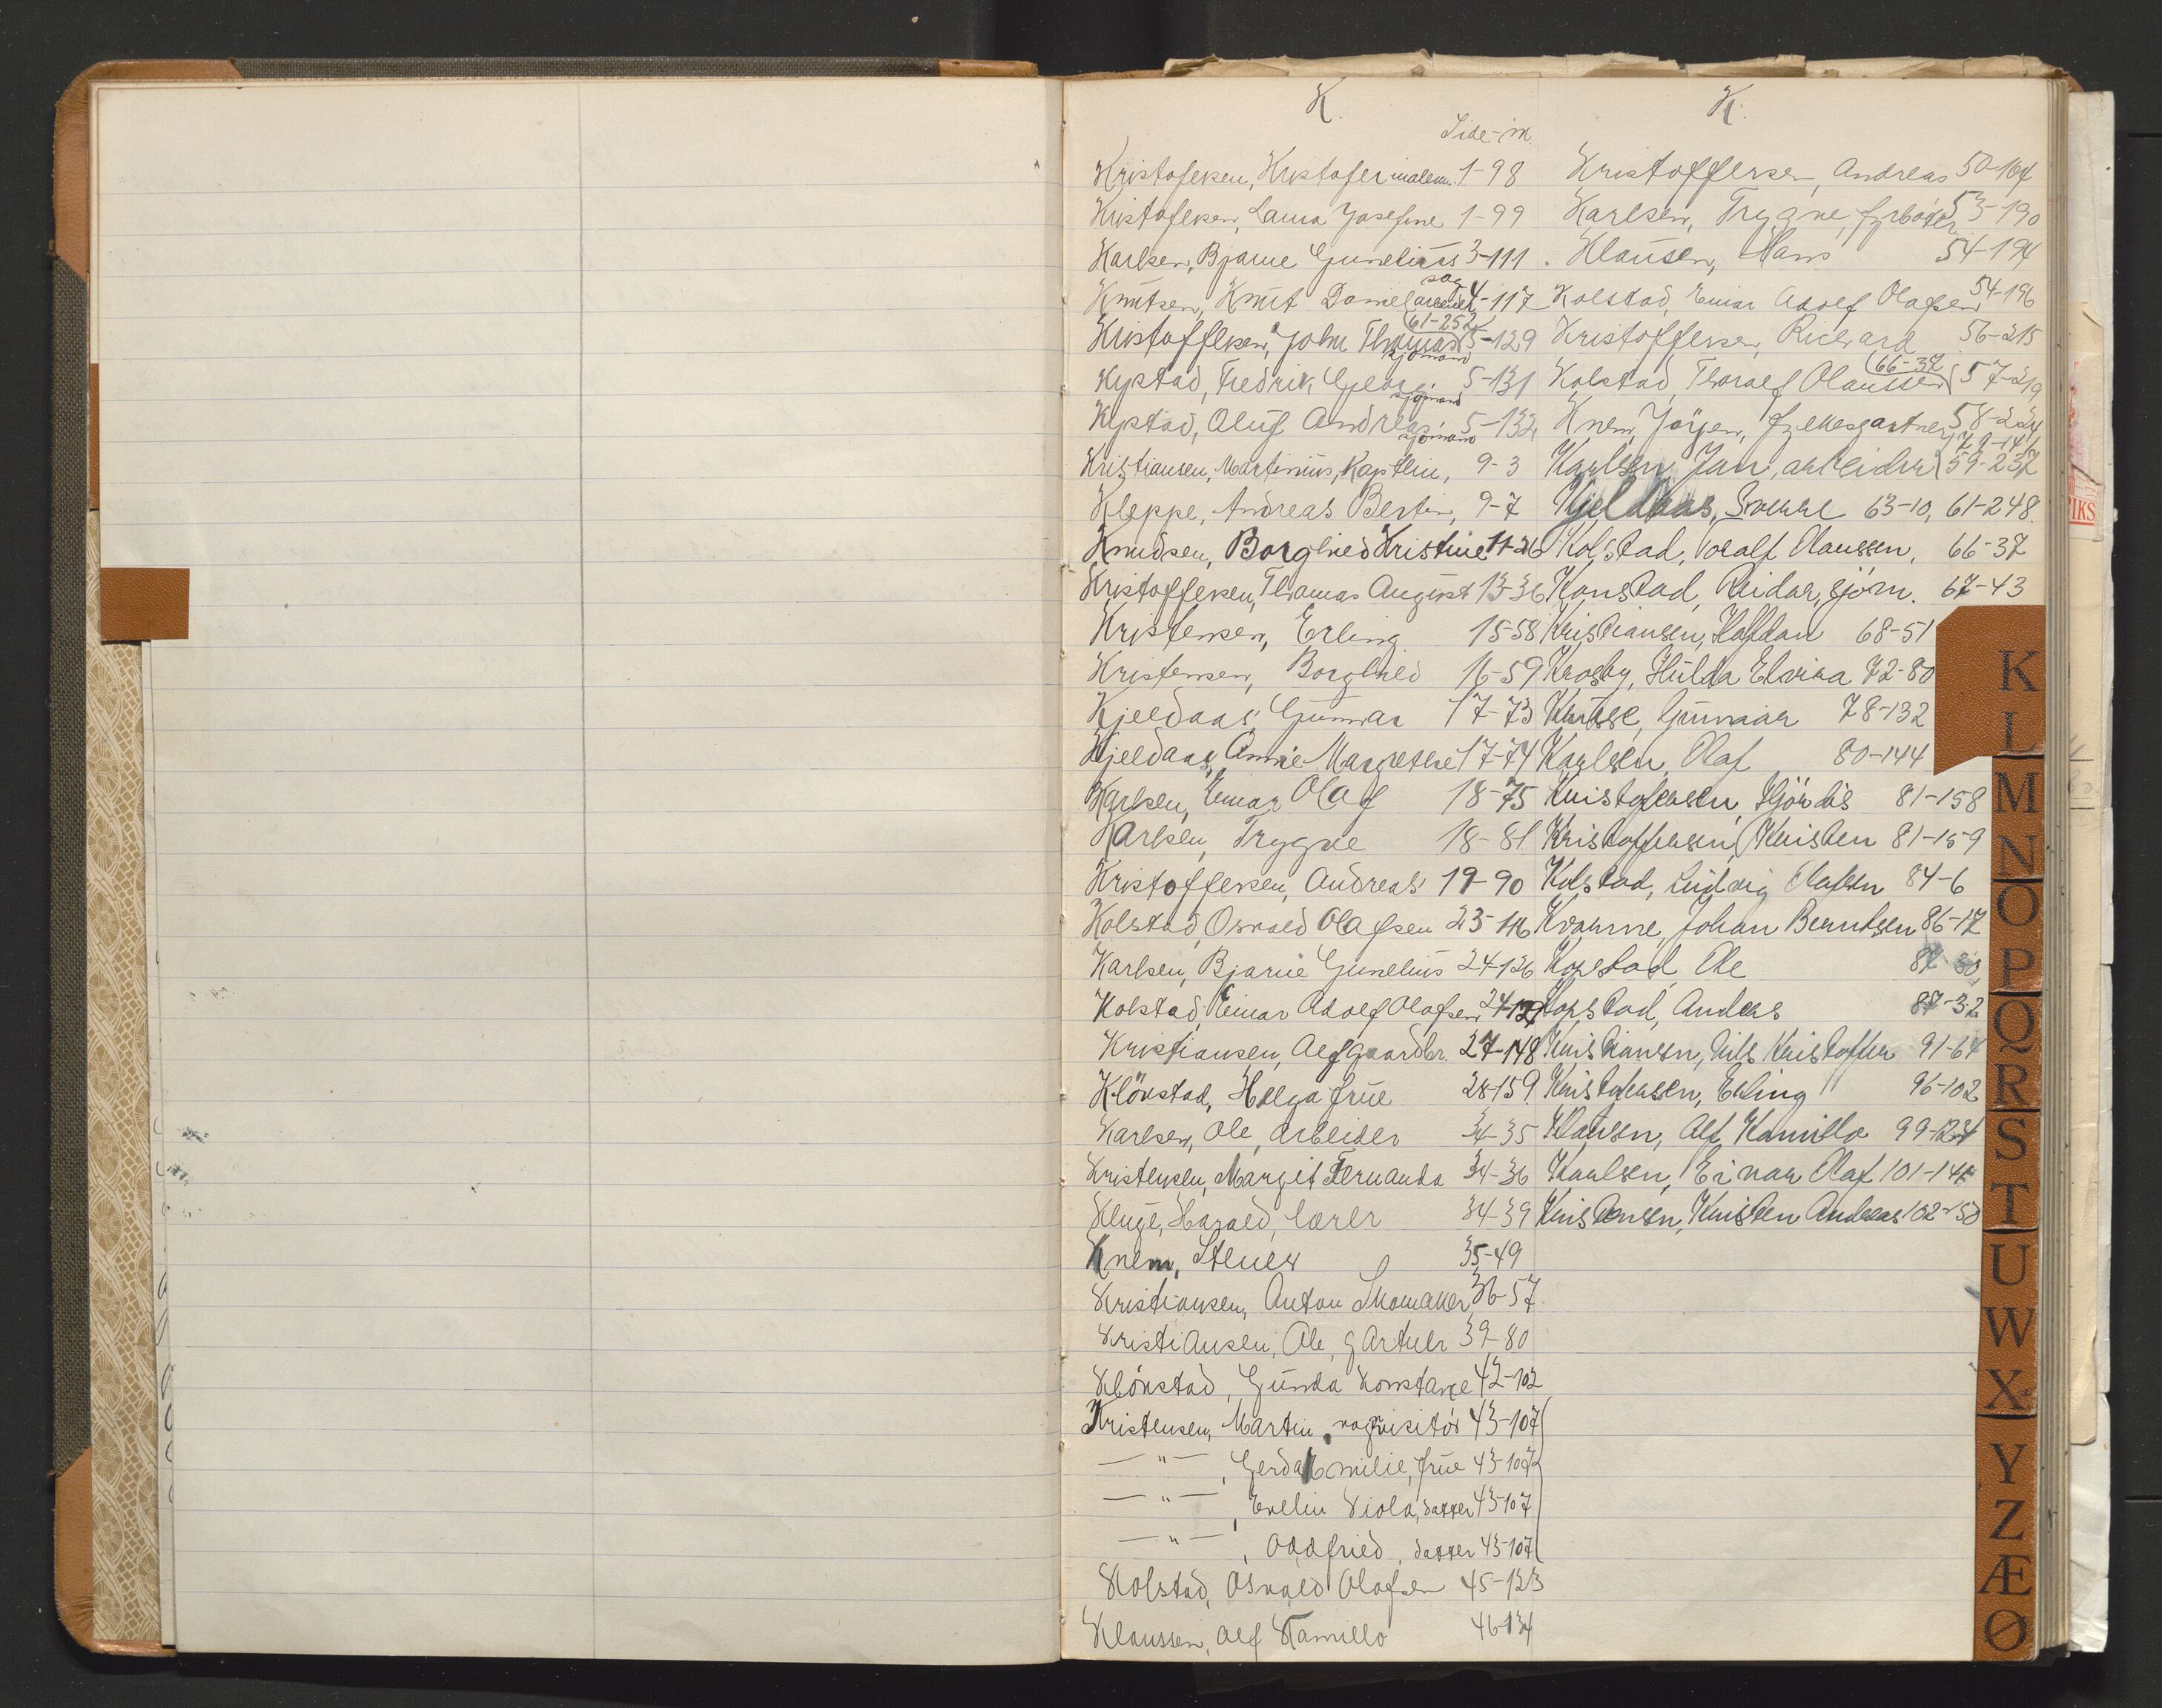 K.
Side-nr.
Kristofersen, Kristofer malem. 1-98
Kristofersen, Laura Josefine 1-99
Karlsen, Bjarne Gunelius 3-111
Knutsen, Knut Daniel sag arbeider 4-117
Kristoffersen, John Thomas sjömand (61-252) 5-129
Kystad, Fredrik Georg sjömand 5-131
Kystad, Oluf Andreas sjömand 5-132
Kristiansen, Martinius, Kaptein, 9-3
Kleppe, Andreas Bertin, 9-7
Knudsen, Borghed Kristine 11-26
Kristoffersen, Thomas August 13-36
Kristensen, Erling 15-58
Kristensen, Borghed 16-59
Kjeldaas, Gunnar 17-73
Kjeldaas, Annie Margrethe 17-74
Karlsen, Einar Olaf 18-75
Karlsen, Trygve 18-81
Kristoffersen, Andreas 19-90
Kolstad, Osvald Olafsen 23-116
Karlsen, Bjarne Gunelius 24-126
Kolstad, Einar Adolf Olafsen 24-127
Kristiansen, Alf gaardbr. 27-148
Klönstad, Helga frue 28-159
Karlsen, Ole, arbeider 34-35
Kristensen, Margit Fernanda 34-36
Kluge, Harald, lærer 34-39
Knem, Stener 35-49
Kristiansen, Anton Skomaker 36-57
Kristiansen, Ole, gartner 39-80
Klönstad, Gunda Konstanse 42-102
Kristensen, Martin, vognvisitör 43-107
— " — , Gerda Emilie, frue 43-107
— " — , Evelin Viola, datter 43-107
— " — , Oddfried, datter 43-107
Kolstad, Osvald Olafsen 45-123
Klaussen, Alf Kamillo 46-134
K.
Kristoffersen, Andreas 50-164
Karlsen, Trygve, fyrböter 53-190
Klausen, Hans 54-194
Kolstad, Einar Adolf Olafsen 54-196
Kristoffersen, Richard 56-215
Kolstad, Thoralf Olaussen (66-37) 57-219
Knem, Jörgen, fylkesgartner 58-224
Karlsen, Jan, arbeider 79-141 59-232
Kjeldaas, Sverre 63-10, 61-248
Kolstad, Toralf Olaussen, 66-37
Konstad, Reidar, sjöm. 67-43
Kristiansen, Halfdan 68-51
Krosby, Hulda Elvira 72-80
Kruse, Gunnar 78-132
Karlsen, Olaf 80-144
Kristofersen, Hjördis 81-158
Kristoffersen, Kristen 81-159
Kolstad, Ludvig Olafsen 84-6
Kvarme, Johan Berntsen 86-17
Kopstad, Ole 87-30
Kopstad, Anders 87-32
Kristiansen, Nils Kristoffer 91-64
Kristofersen, Erling 96-102
Klausen, Alf Kamillo 99-124
Karlsen, Einar Olaf 101-142
Kristensen, Kristen Andreas 102-150
K
L
M
N
O
P
Q
R
S
T
U
W
X
Y
Z
Æ
Ø
IKS